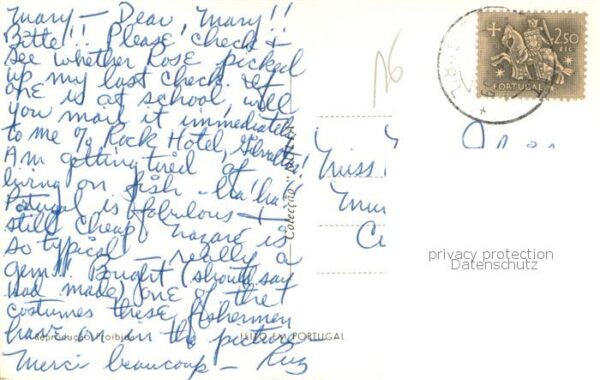 Mary — Dear Mary!!
Bitte!! Please! check &
see whether Rose picked
up my last check. If
one is at school, will
you mail it immediately
to me % Rock Hotel, Gibraltar!
Am getting tired of
living on fish - ha! ha!
Portugal is fabulous &
still cheap! Nazaré is
so typical — really a
gem!. Bought (should say
had made) one of the
costumes these fishermen
have on in the picture —
Merci beaucoup —
Reprodução Proibida
EDIÇÃO EM PORTUGAL
Colecção
2$50
PORTUGAL
Miss
privacy protection
Datenschutz